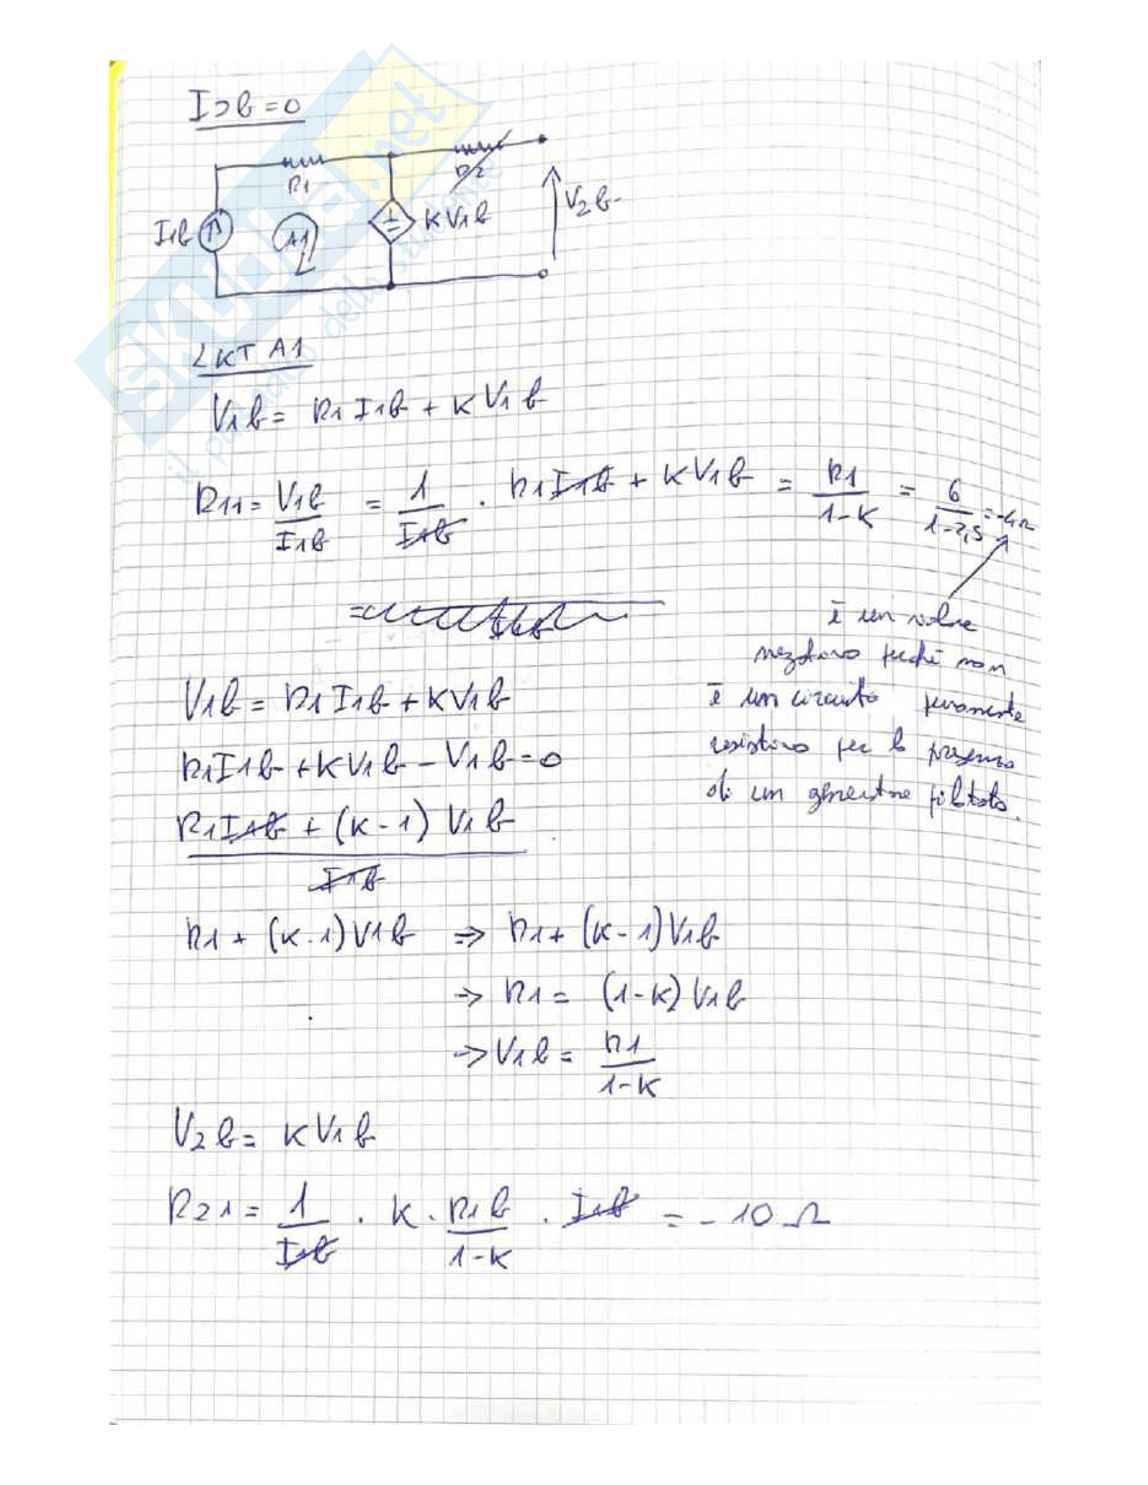 I2b=0
R1
R2
I1b
A1
KV1b
V2b
LKT A1
V1b = R1 I1b + K V1b
R11 = V1b / I1b = 1 / I1b · R1I1b + KV1b = R1 / 1-K = 6 / 1-2,5 = -4Ω
è un valore
negativo perché non
è un circuito puramente
resistivo per la presenza
di un generatore pilotato.
V1b = R1 I1b + KV1b
R1I1b + KV1b - V1b = 0
R1I1b + (K-1) V1b
I1b
R1 + (K-1)V1b ⇒ R1 + (K-1)V1b
→ R1 = (1-K) V1b
→ V1b = R1 / 1-K
V2b = KV1b
R21 = 1 / I1b · K · R1b / 1-K · I1b = -10 Ω
SKUOLA.net
il paradiso dello studente